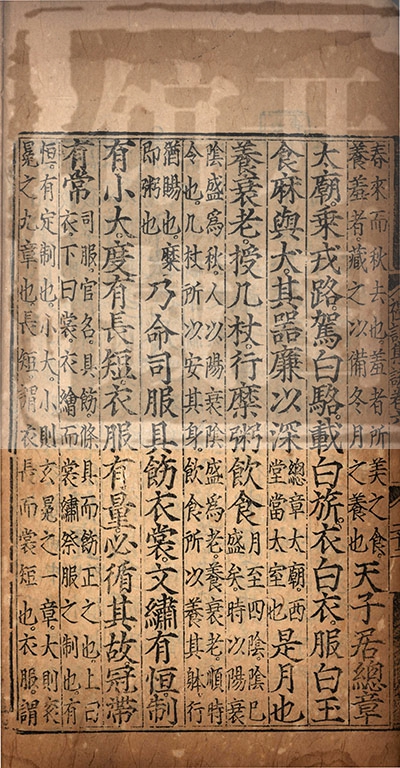 春來而秋去也羞者所美之食。
養羞者。藏之以備冬月之養也
天子居總章
太廟。乘戎路駕白駱。載白旂。衣白衣。服白玉
食麻與犬。其器廉以深
總章太廟。西
堂當太室也
是月也
養衰老。授几杖。行糜粥飲食
月至四陰陰已
盛矣。時以陽衰
陰盛爲秋。人以陽衰陰盛爲老。養衰老。順時
令也。几杖所以安其身。飲食所以養其軆。行
猶賜也。糜
即粥也
乃命司服具飭衣裳文繡有恒。制
有小大。度有長短。衣服有量。必循其故。冠帶
有常
司服。官名。具飭。條具而飭正之也。上曰
衣下曰裳。衣繪而裳繡祭服之制也。有
恒。有定制也。小大。小則玄冕之一章。大則衮
冕之九章也。長短。謂衣長而裳短也。衣服。謂